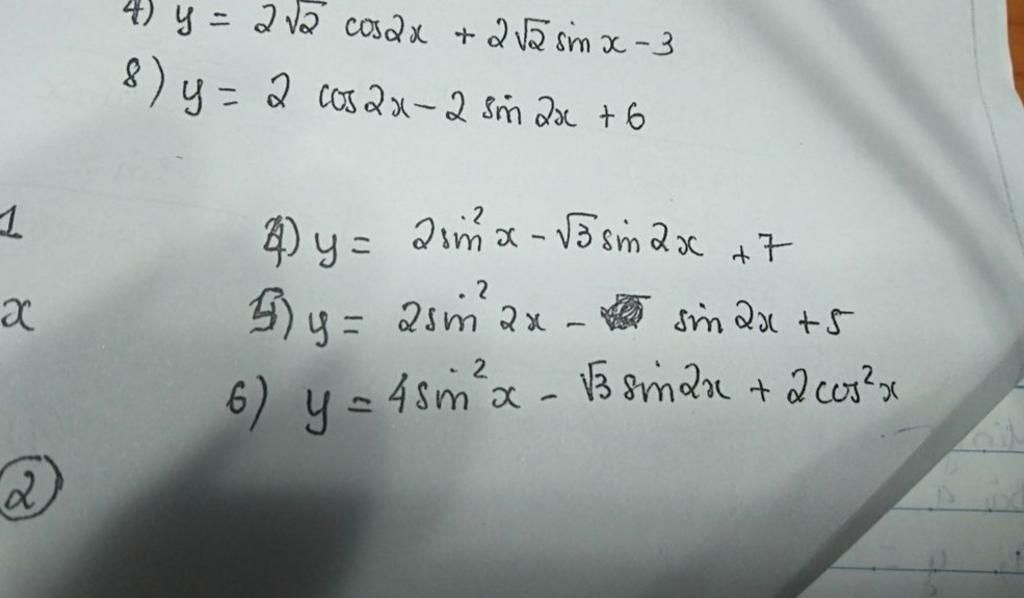 4) y = 2√2 cos2x + 2√2 sin x - 3
8) y = 2 cos 2x - 2 sin 2x + 6
1
4) y = 2sin²x - √3 sin 2x + 7
x
5) y = 2sin² 2x - sin 2x + 5
6) y = 4sin²x - √3 sin2x + 2cos²x
2